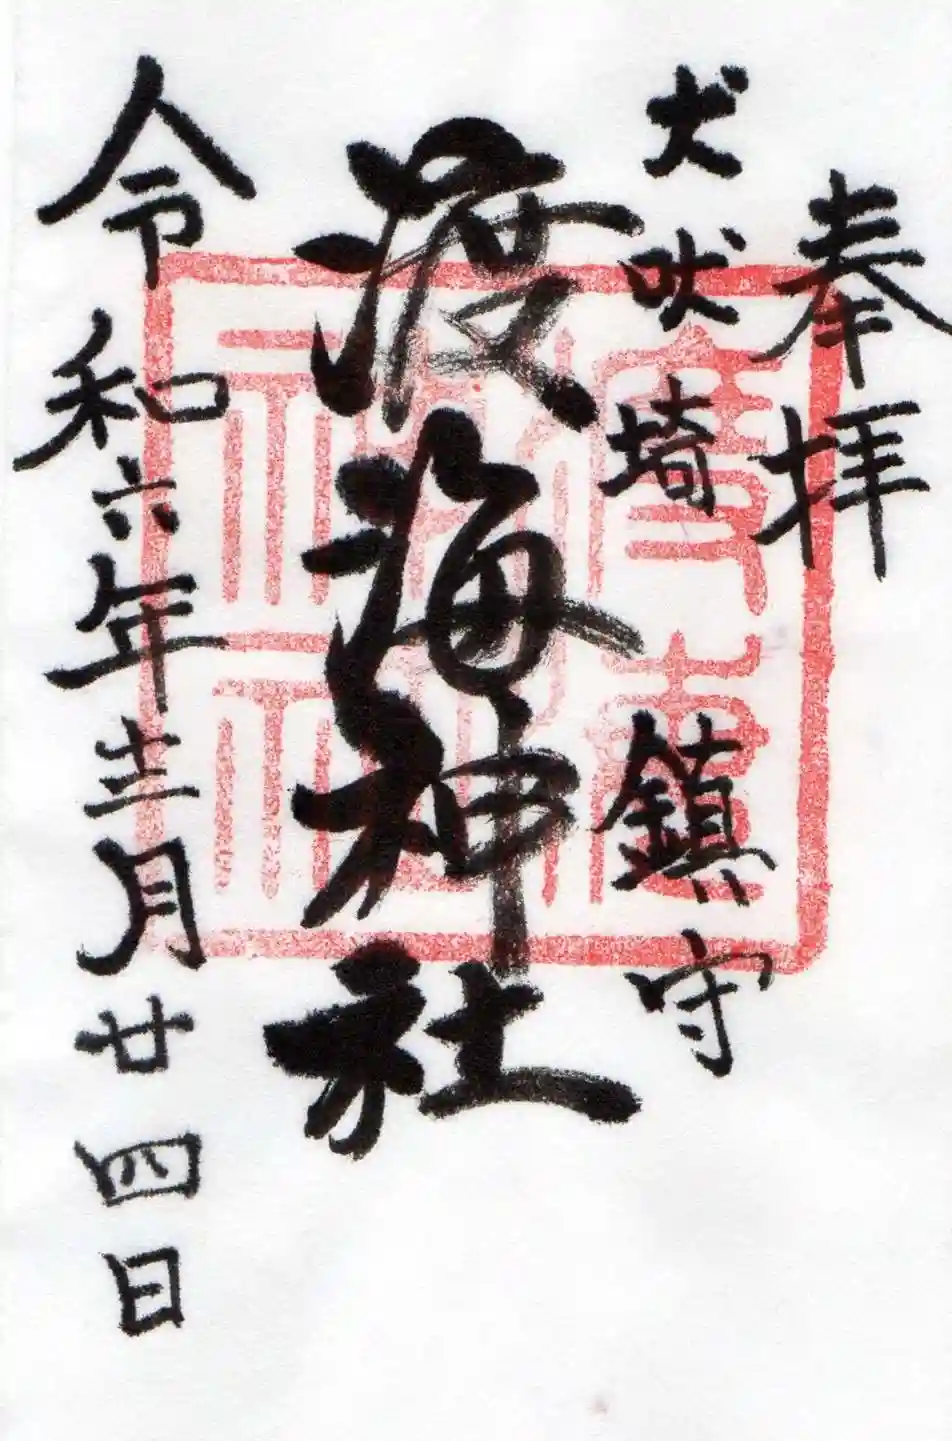 奉拝
犬吠埼鎮守
渡海神社
令和六年十二月廿四日